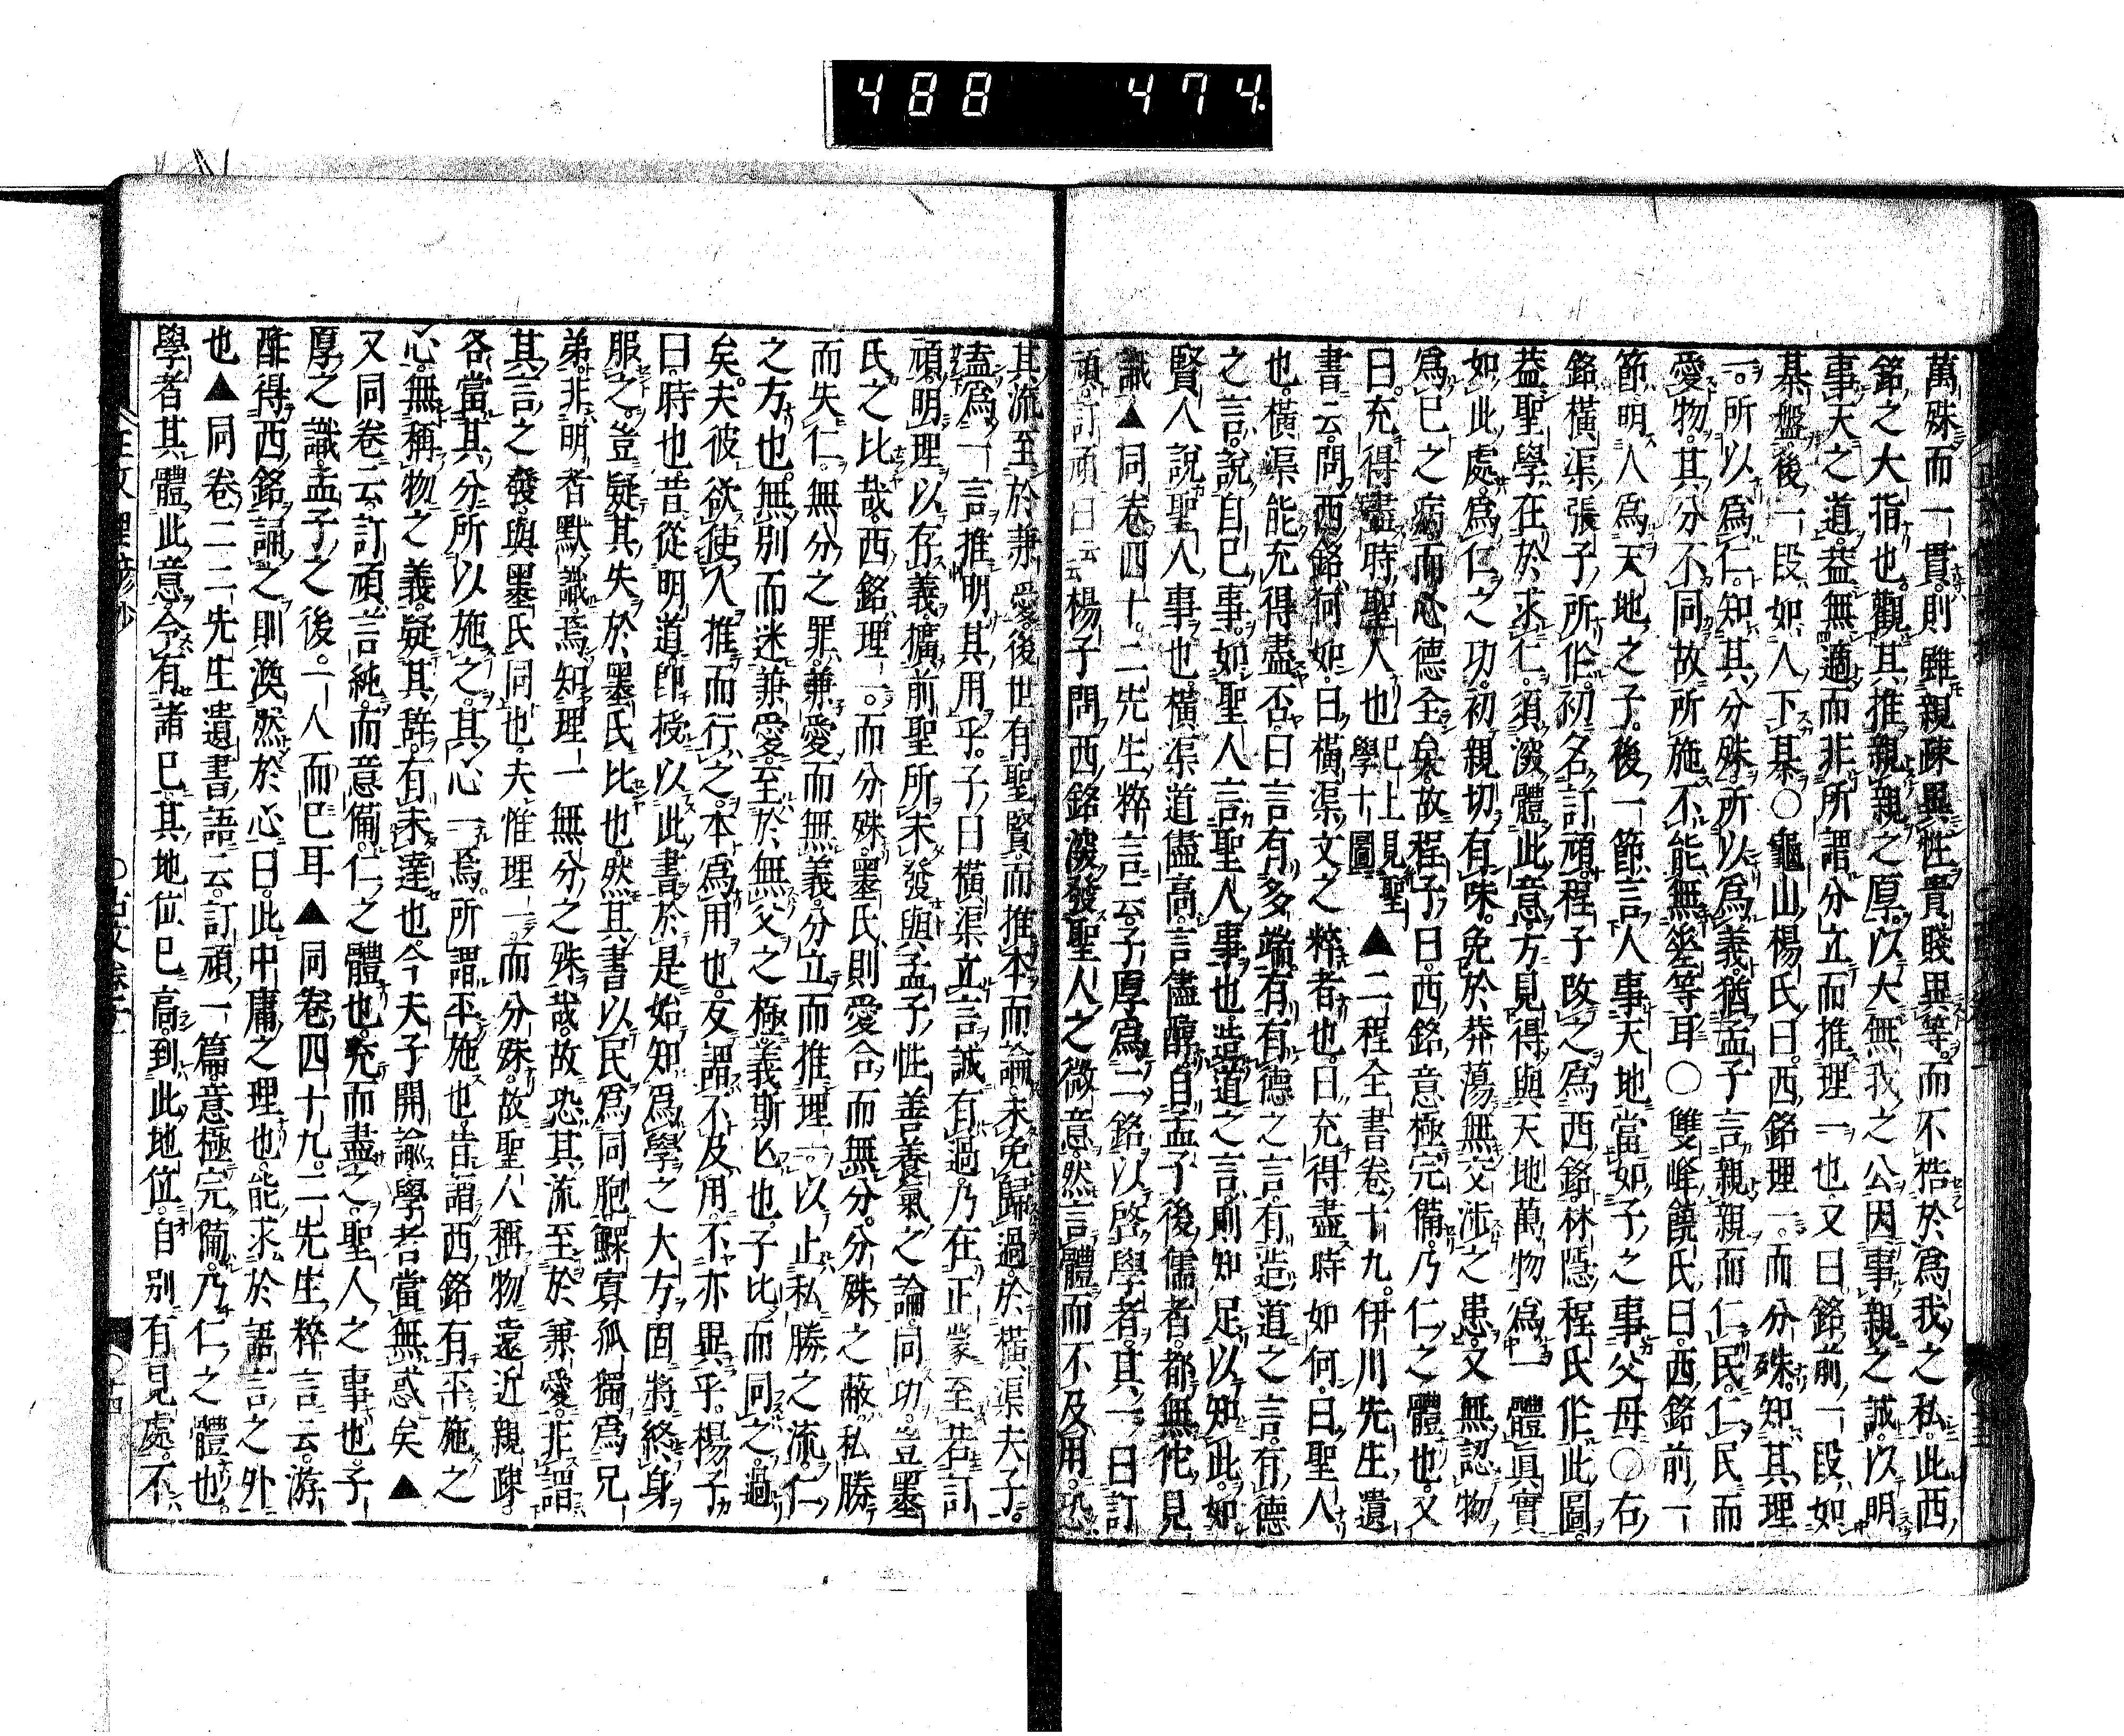 488 474.
萬殊而一貫則雖親疎異性貴賤異等而不梏於爲我之私此西
銘之大指也觀其推親親之厚以大無我之公因事親之誠以明
事天之道蓋無適而非所謂分立而推理一也又曰銘前一段如
棊盤後一段如人下棊○龜山楊氏曰西銘理一而分殊知其理
一所以爲仁知其分殊所以爲義猶孟子言親親而仁民仁民而
愛物其分不同故所施不能無差等耳○雙峰饒氏曰西銘前一
節明人爲天地之子後一節言人事天地當如子之事父母○右
銘橫渠張子所作初名訂頑程子改之爲西銘林隱程氏作此圖
蓋聖學在於求仁須深體此意方見得與天地萬物爲一體眞實
如此處爲仁之功初親切有味免於莽蕩無交涉之患又無認物
爲已之病而心德全矣故程子曰西銘意極完備乃仁之體也又
曰充得盡時聖人也已上見聖學十圖▲二程全書卷十九伊川先生遺
書云問西銘何如曰橫渠文之粹者也曰充得盡時如何曰聖人
也橫渠能充得盡否曰言有多端有有德之言有造道之言有德
之言說自已事如聖人言聖人事也造道之言則知足以知此如
賢人說聖人事也橫渠道儘高言儘醇自孟子後儒者都無佗見
識▲同卷四十二先生粹言云子厚爲二銘以啓學者其一曰訂
頑訂頑曰云云楊子問西銘深發聖人之微意然言體而不及用恐
其流至於兼愛後世有聖賢而推本而論未免歸過於橫渠夫子
盍爲一言推明其用乎子曰橫渠立言誠有過乃在正蒙至若訂
頑明理以存義擴前聖所未發與孟子性善養氣之論同功豈墨
氏之比哉西銘理一而分殊墨氏則愛合而無分分殊之蔽私勝
而失仁無分之罪兼愛而無義分立而推理一以止私勝之流仁
之方也無別而迷兼愛至於無父之極義斯亡也子比而同之過
矣夫彼欲使人推而行之本爲用也反謂不及用不亦異乎楊子
曰時也昔從明道即授以此書於是始知爲學之大方固將終身
服之豈疑其失於墨氏比也然其書以民爲同胞鰥寡孤獨爲兄
弟非明者默識焉知理一無分之殊哉故恐其流至於兼愛非謂
其言之發與墨氏同也夫惟理一而分殊故聖人稱物遠近親疎
各當其分所以施之其心一焉所謂平施也昔謂西銘有平施之
心無稱物之義疑其辞有未達也今夫子開諭學者當無惑矣▲
又同卷云訂頑言純而意備仁之體也充而盡之聖人之事也子
厚之識孟子之後一人而已耳▲同卷四十九二先生粹言云游
酢得西銘誦之則渙然於心曰此中庸之理也能求於語言之外
也▲同卷二二先生遺書語云訂頑一篇意極完備乃仁之體也
學者其體此意令有諸已其地位已高到此地位自別有見處不